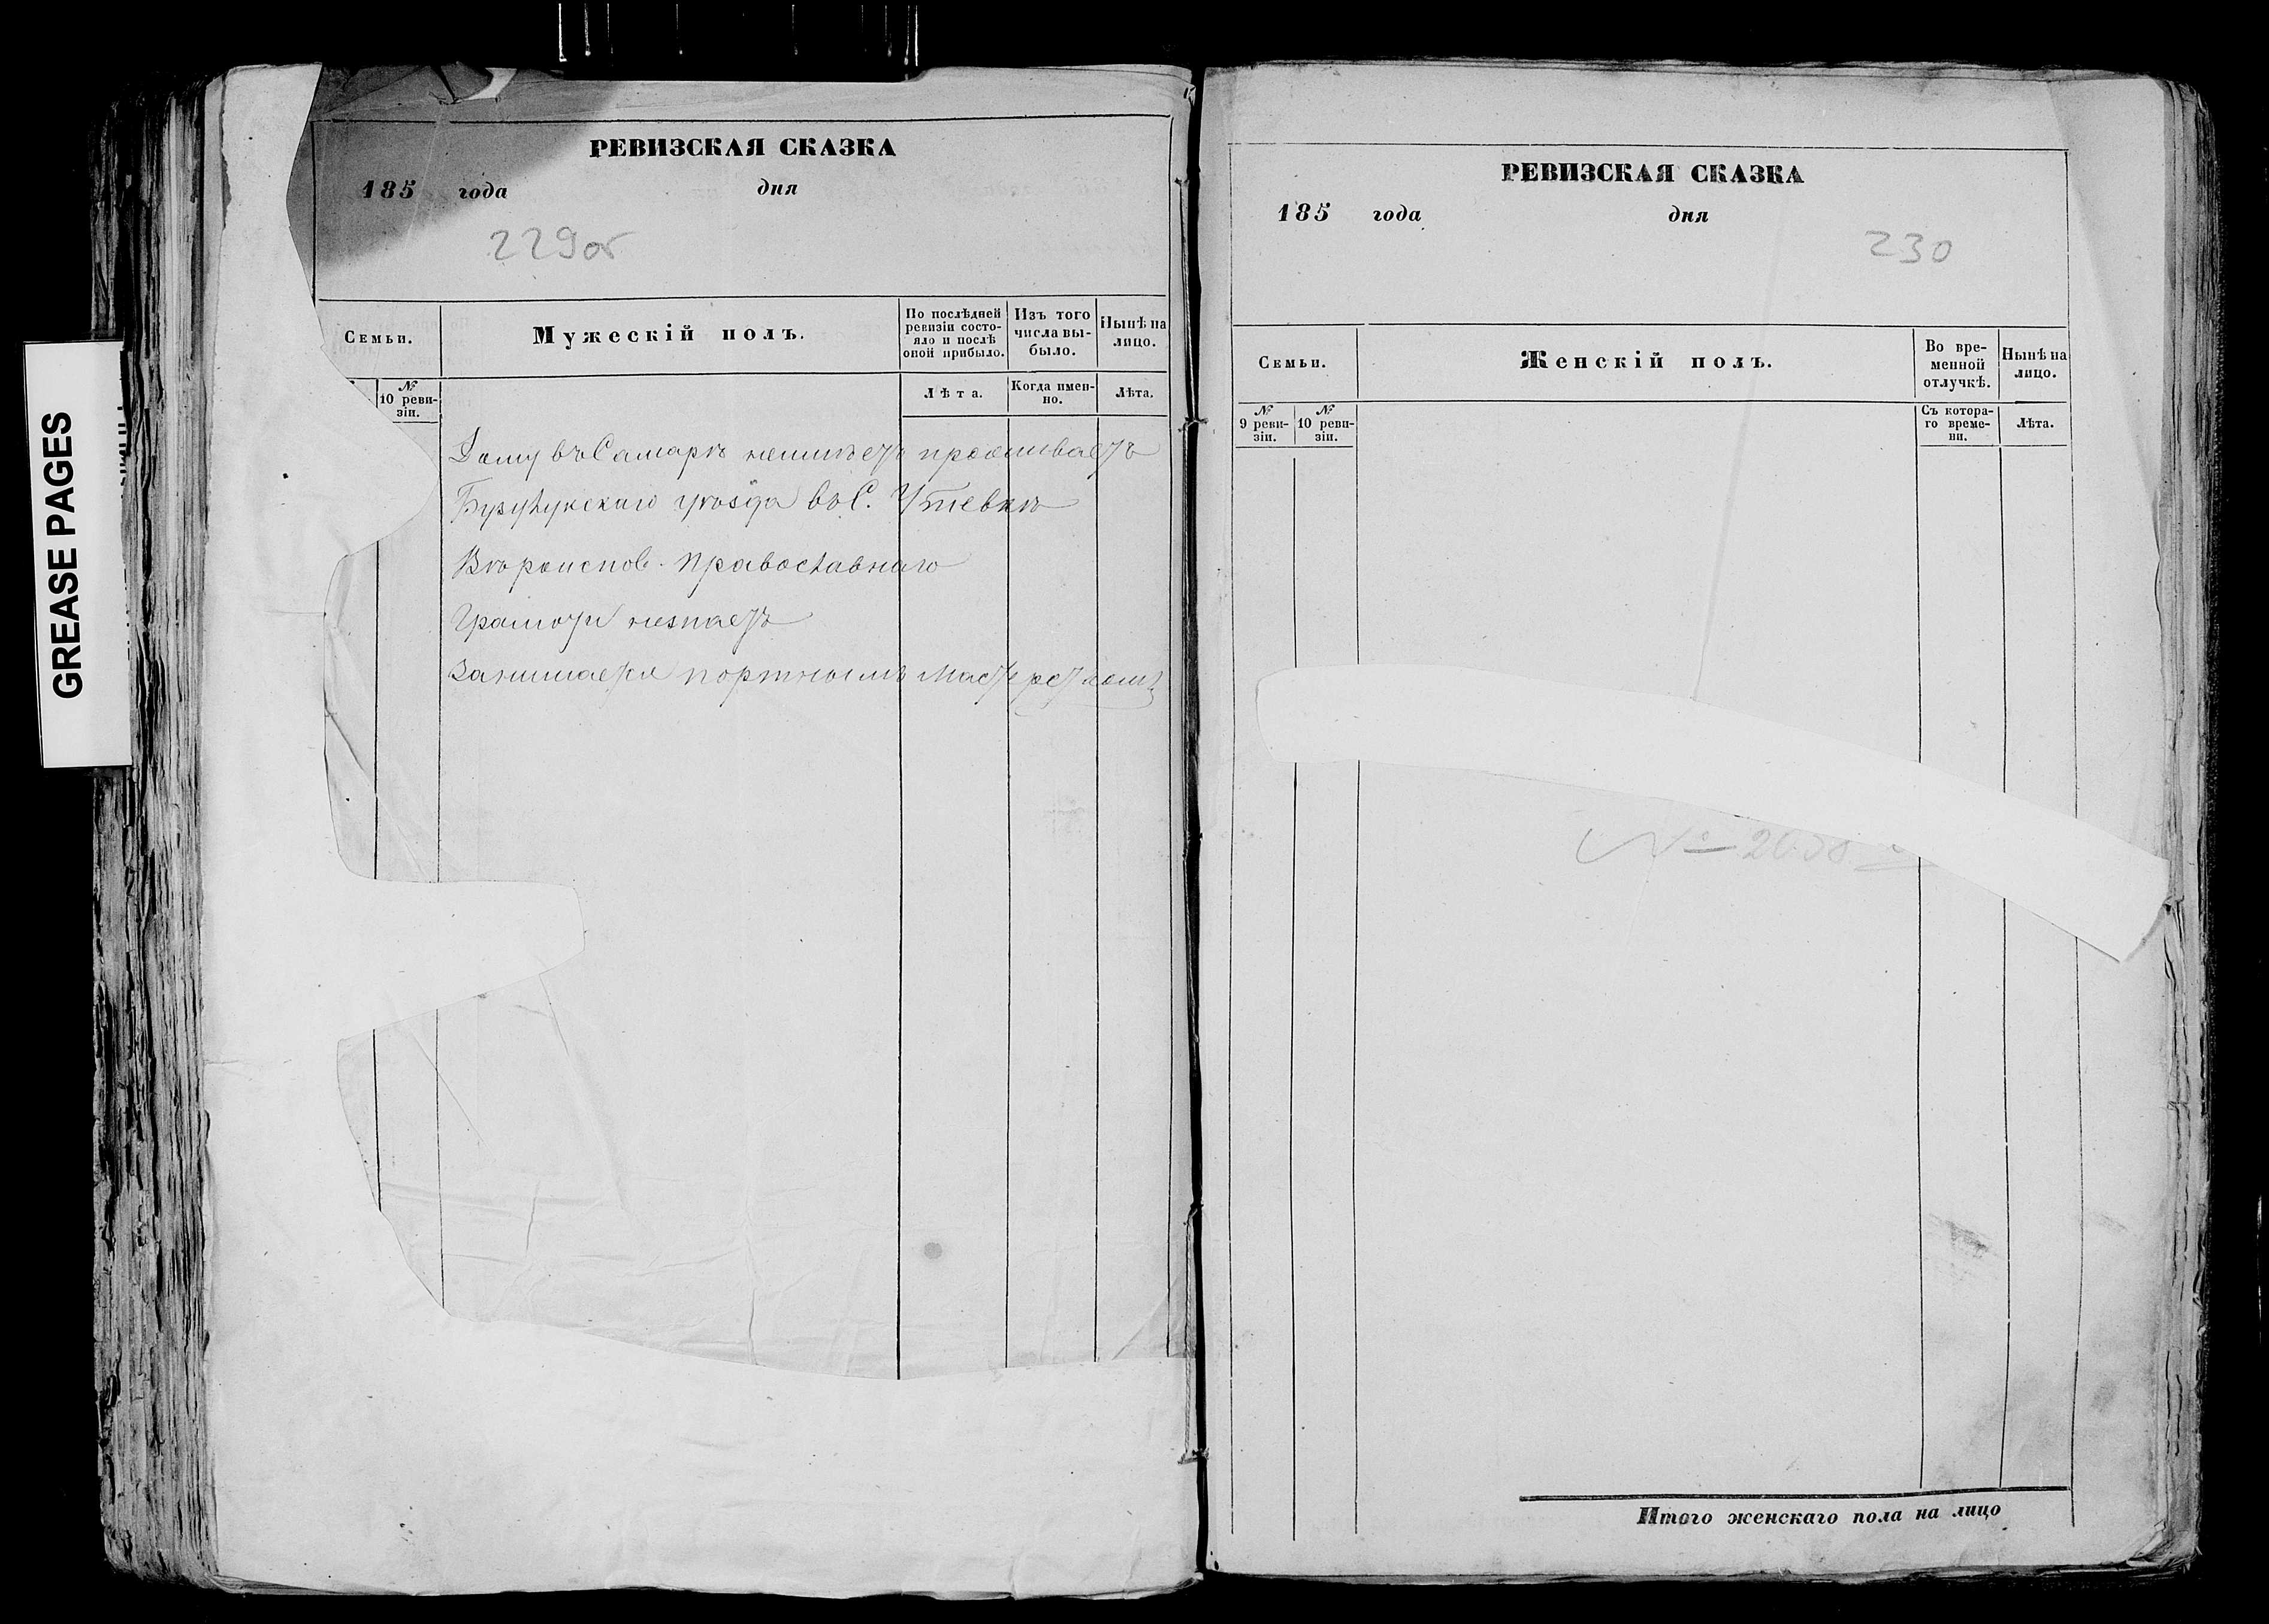 GREASE PAGES
РЕВИЗСКАЯ СКАЗКА
185 года дня
229об
Семьи.
Мужескій полъ.
По послѣдней ревизіи состо-
яло и послѣ
оной прибыло.
Изъ того
числа вы-
было.
Нынѣ на
лицо.
№
10 реви-
зіи.
Лѣта.
Когда имен-
но.
Лѣта.
Дому въ Самарѣ неимѣетъ проживаетъ
Бузулукскаго уѣзда въ С. Утевкѣ
Вѣроиспов. православнаго
Грамоты незнаетъ
Занимается портнымъ мастерствомъ
РЕВИЗСКАЯ СКАЗКА
185 года дня
230
Семьи.
Женскій полъ.
Во вре-
менной
отлучкѣ.
Нынѣ на
лицо.
№
9 реви-
зіи.
№
10 реви-
зіи.
Съ котора-
го време-
ни.
Лѣта.
№
Итого женскаго пола на лицо